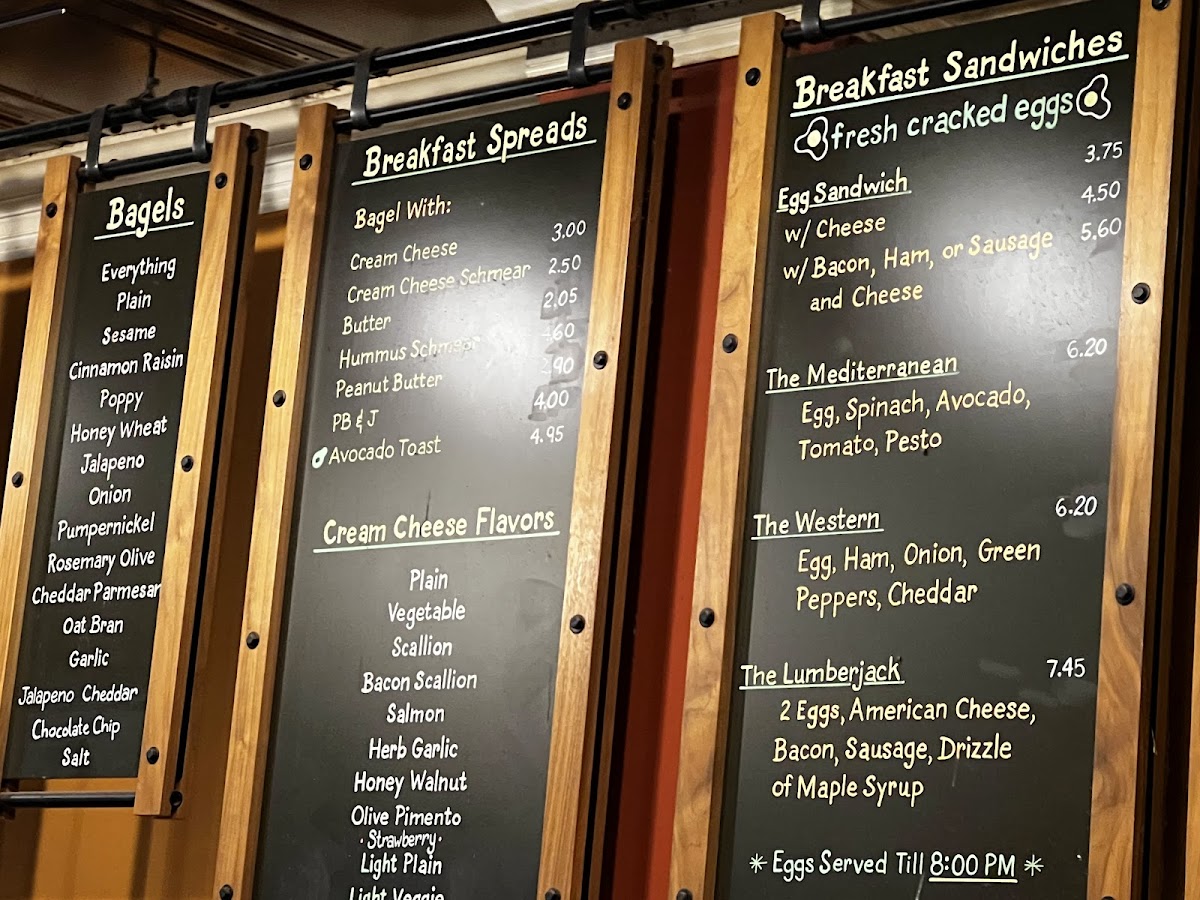 Bagels
Everything
Plain
Sesame
Cinnamon Raisin
Poppy
Honey Wheat
Jalapeno
Onion
Pumpernickel
Rosemary Olive
Cheddar Parmesan
Oat Bran
Garlic
Jalapeno Cheddar
Chocolate Chip
Salt
Breakfast Spreads
Bagel With:
Cream Cheese 3.00
Cream Cheese Schmear 2.50
Butter 2.05
Hummus Schmear .60
Peanut Butter 2.90
PB & J 4.00
Avocado Toast 4.95
Cream Cheese Flavors
Plain
Vegetable
Scallion
Bacon Scallion
Salmon
Herb Garlic
Honey Walnut
Olive Pimento
· Strawberry ·
Light Plain
Light Veggie
Breakfast Sandwiches
fresh cracked eggs
Egg Sandwich 3.75
w/ Cheese 4.50
w/ Bacon, Ham, or Sausage 5.60
and Cheese
The Mediterranean 6.20
Egg, Spinach, Avocado,
Tomato, Pesto
The Western 6.20
Egg, Ham, Onion, Green
Peppers, Cheddar
The Lumberjack 7.45
2 Eggs, American Cheese,
Bacon, Sausage, Drizzle
of Maple Syrup
* Eggs Served Till 8:00 PM *